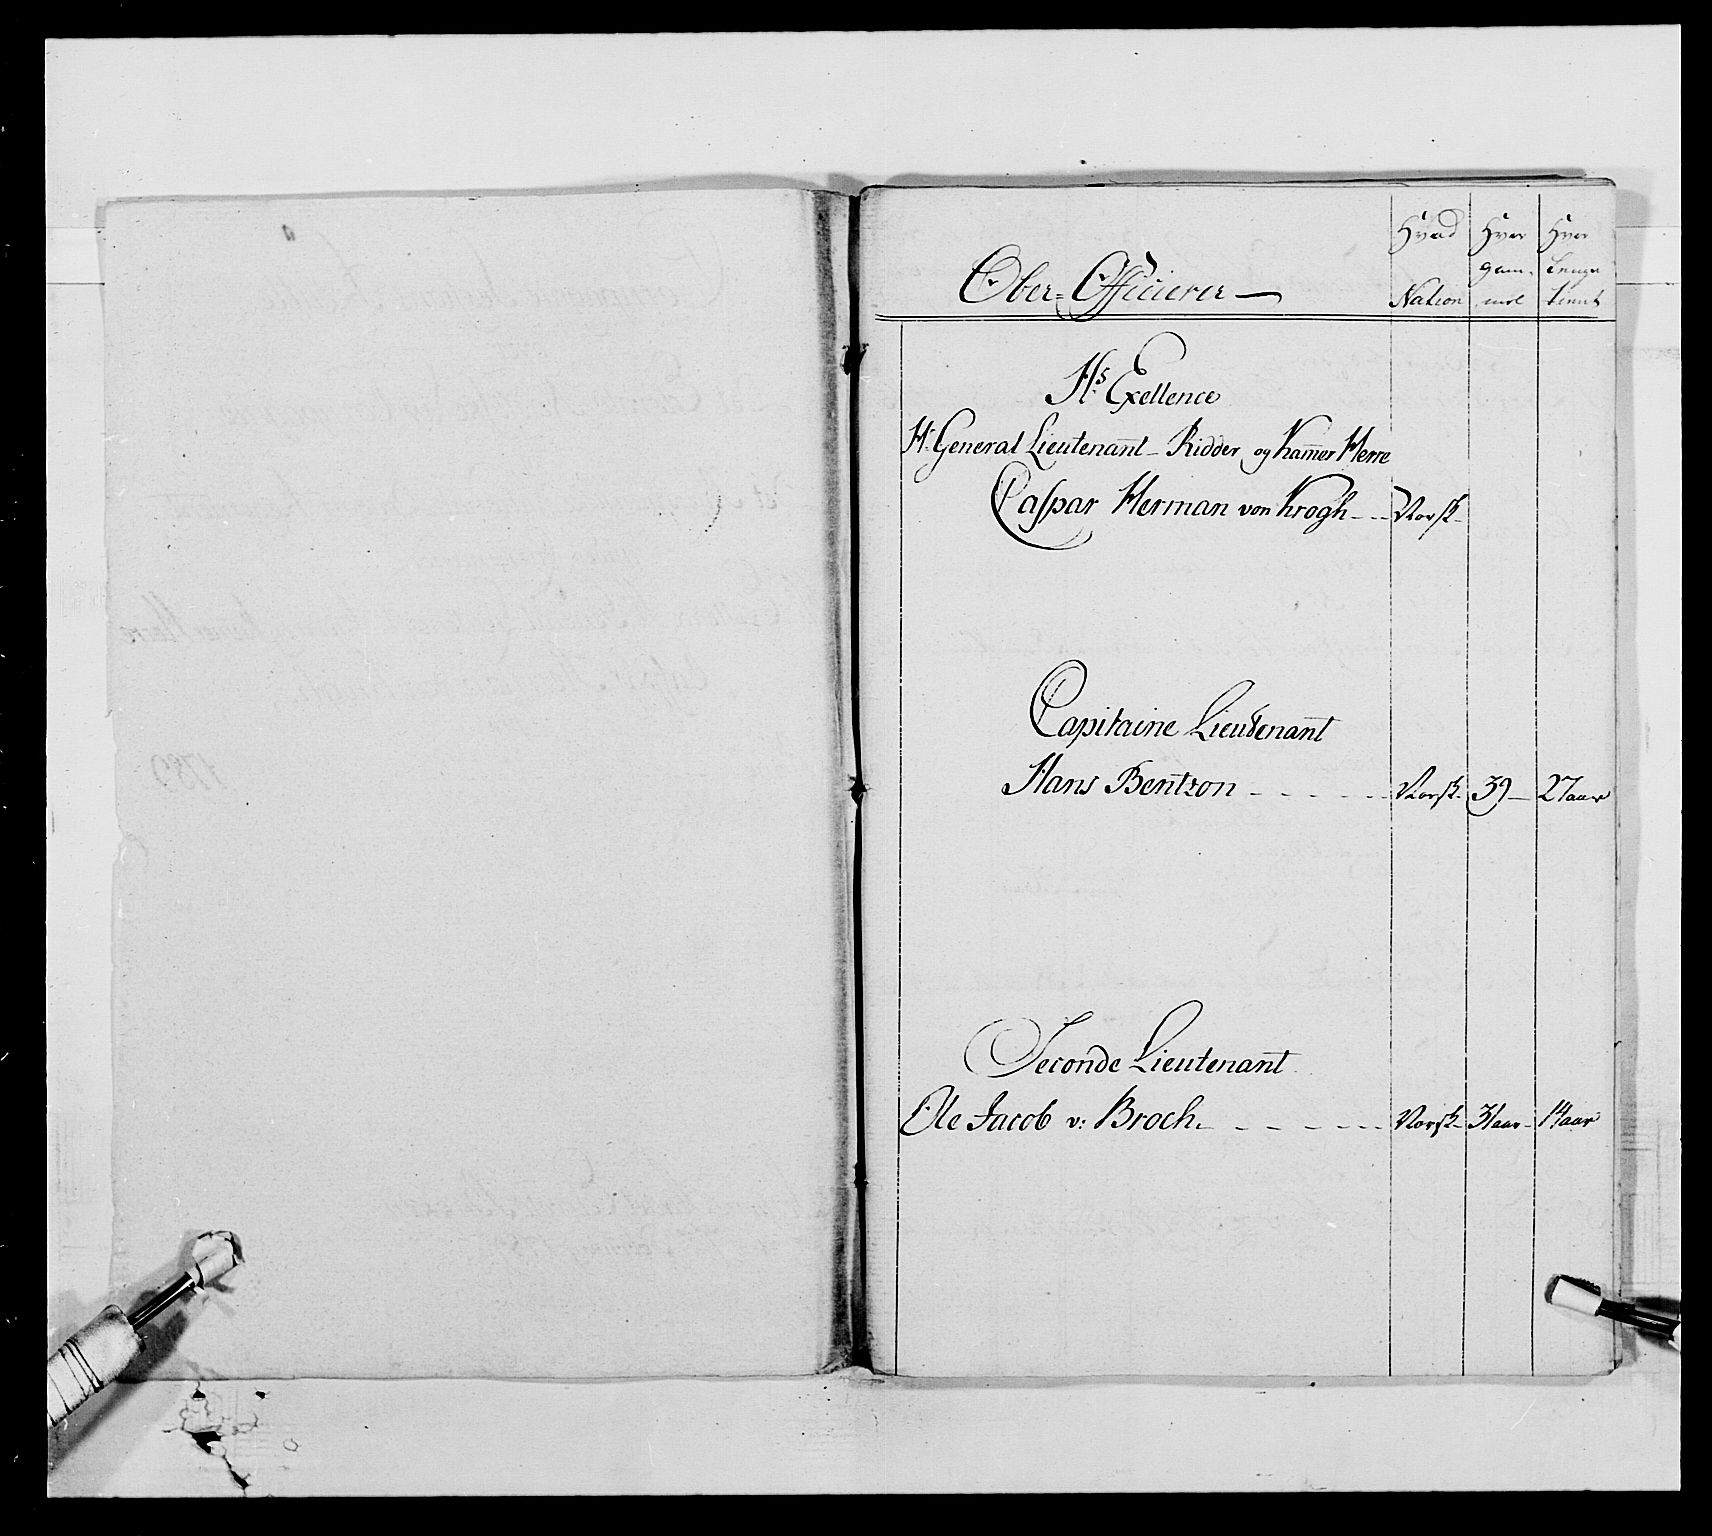 Ober-Officierer
Hvad Nation
Hvor gammel
Hvor Længe tient
Hs Exellence
Hr General Lieutenant - Ridder og Kam̄er Herre
Caspar Herman von Krogh - - Norsk-
Capitaine Lieutenant
Hans Bentzon - - - - - Norsk- 39 - 27 aar
Seconde Lieutenant
Ole Jacob v: Broch. - - - - - Norsk- 31 aar - 14 aar